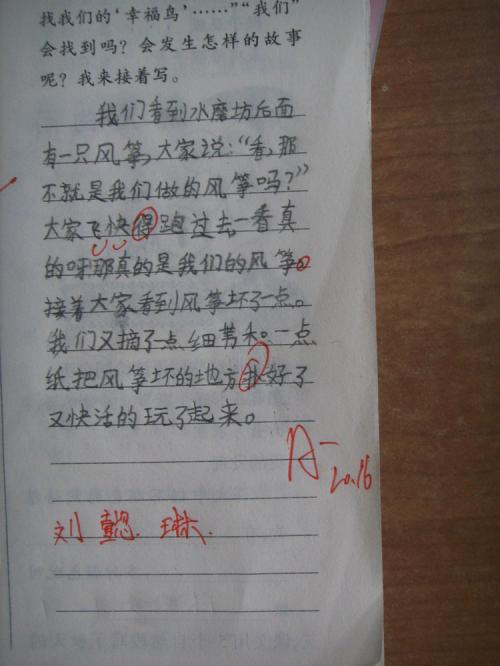 找我们的‘幸福鸟’……”“我们”
会找到吗？会发生怎样的故事
呢？我来接着写。
我们看到水磨坊后面
有一只风筝，大家说：“看，那
不就是我们做的风筝吗？”
大家飞快得跑过去一看真
的呀那真的是我们的风筝。
接着大家看到风筝坏了一点。
我们又摘了一点细芳禾。一点
纸把风筝坏的地方补好了
又快活的玩了起来。
A-
20.16
刘 琳